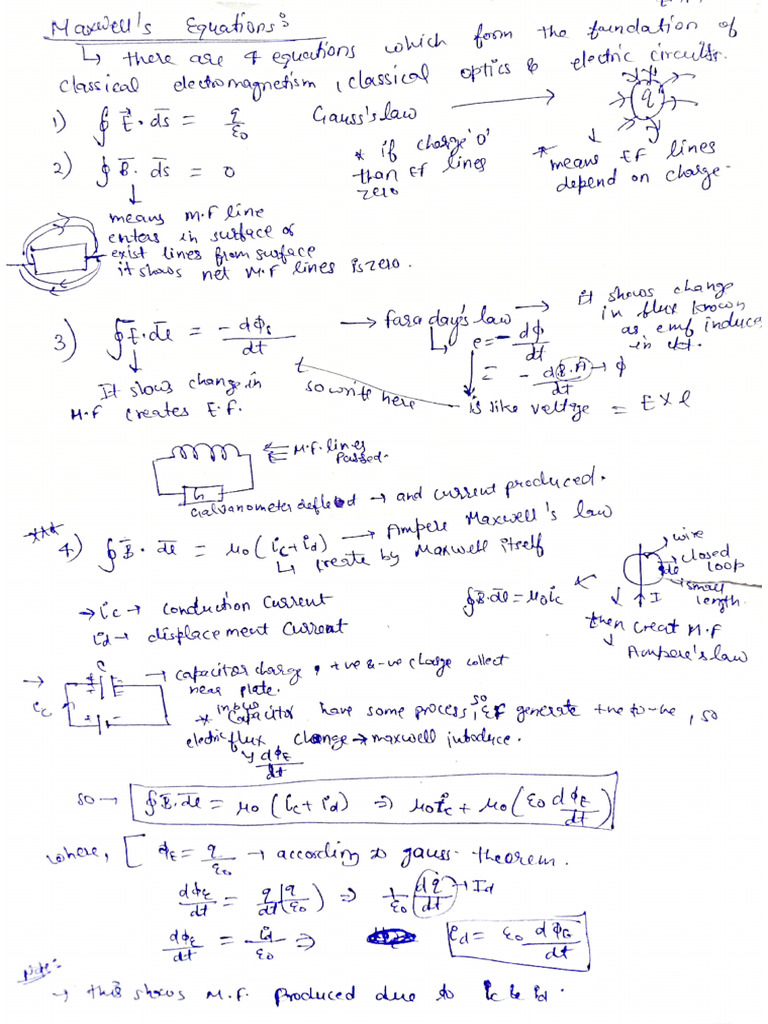 Maxwell's Equations:
↳ there are 4 equations which form the foundation of
classical electromagnetism, classical optics & electric circuits.
1) ∮ E⃗. d̅s̅ = q/ε0 Gauss's law ⟶ q
* if charge '0' than EF lines zero
* means EF lines depend on charge.
2) ∮ B̅. d̅s̅ = 0
↓
means M.F line
enters in surface &
exist lines from surface
it shows net M.F lines is zero.
3) ∮ E̅. d̅l̅ = - dΦ/dt → faraday's law → it shows change
in flux known
as emf induce
in ckt.
↳ e = - dΦ/dt
= - d(B.A)/dt → Φ
is like voltage = E x l
so write here
↓
It shows change in
M.F creates E.F.
⇇ M.F. lines
Passed.
G
Galvanometer → and current produced.
*** 4) ∮ B̅. d̅l̅ = μ0 (ic + id) → Ampere Maxwell's law
↳ create by Maxwell itself
→ ic → conduction current
id → displacement current
∮ B̅. d̅l̅ = μ0 ic
wire
closed
loop
dl
small
length.
I
then creat M.F
↓ Ampere's law
→ C
ic
→ capacitor charge, +ve & -ve charge collect
near plate.
* Capacitor have some process, so EF generate +ve to -ve, so
electric flux change → maxwell intoduce.
↳ dΦE/dt
so → ∮ B̅. d̅l̅ = μ0 (ic + id) ⇒ μ0 ic + μ0 (ε0 dΦE/dt)
where, [ ΦE = q/ε0 → according to gauss theorem.
dΦE/dt = d/dt (q/ε0) ⇒ 1/ε0 dq/dt → Id
dΦE/dt = id/ε0 ⇒ id = ε0 dΦE/dt
Note:
→ this shows M.F. produced due to ic & id.